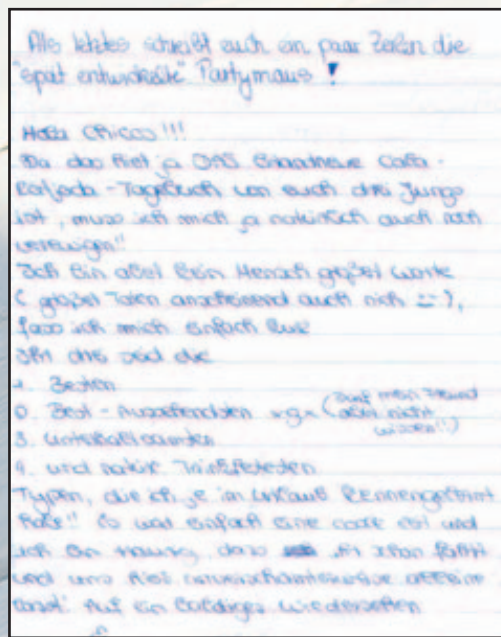 Als letztes schreibt euch ein paar Zeilen die
"spät entwickelte" Partymaus !
Hola Chicas !!!
Da das hier ja DAS Brandneue Cala-
Ratjada-Tagebuch von euch drei Jungs
ist, muss ich mich ja natürlich auch noch
verewigen!!
Ich bin aber kein Mensch großer Worte
( großer Taten anscheinend auch nich =-),
fass ich mich einfach kurz
Ihr drei seid die
1. Besten
Best - Aussehendsten (Darf mein Freund
aber nicht
wissen!!)
3. Unterhaltsamsten
4. und natürl. Trinkfestesten
Typen, die ich je im Urlaub kennengelernt
habe!! Es war einfach eine coole Zeit und
ich bin traurig, dass ihr schon fahrt
und uns hier unverschämterweise alleine
lasst! Auf ein baldiges Wiedersehen